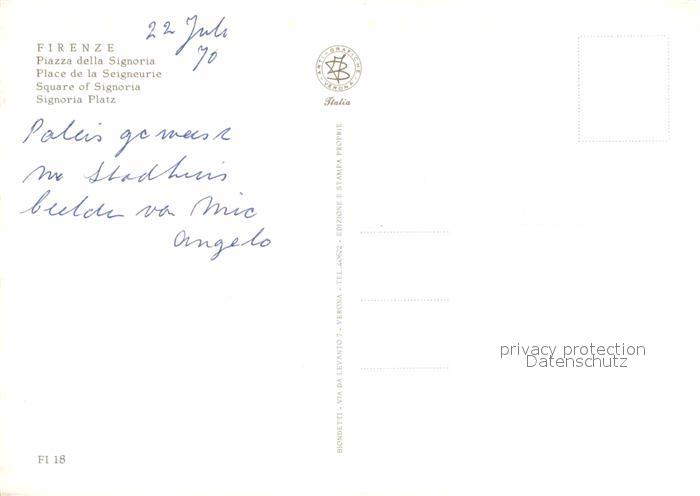 22 Juli
70
FIRENZE
Piazza della Signoria
Place de la Seigneurie
Square of Signoria
Signoria Platz
Paleis geweest
nu Stadhuis
beelden van Mic
angelo
FI 18
ARTI GRAFICHE
VERONA
Italia
BIONDETTI - VIA DA LEVANTO 7 - VERONA - TEL. 40622 - EDIZIONE E STAMPA PROPRIE
privacy protection
Datenschutz